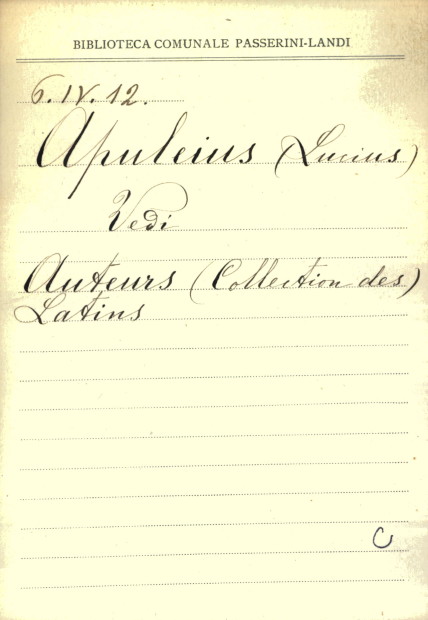 BIBLIOTECA COMUNALE PASSERINI-LANDI
6. IV. 12.
Apuleius (Lucius)
Vedi
Auteurs (Collection des)
Latins
C